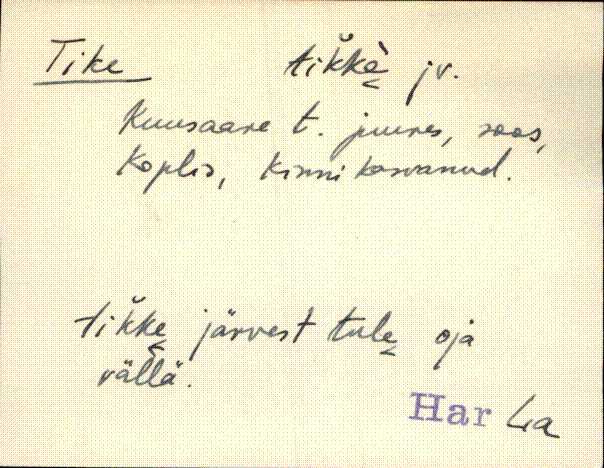 Tike tik̆kè̬ jv.
Kuusaare t. juures, soos,
Koplis, kinni kasvanud.
tik̆ke̬ järvest tule̬ oja
väl̆lä.
Har La